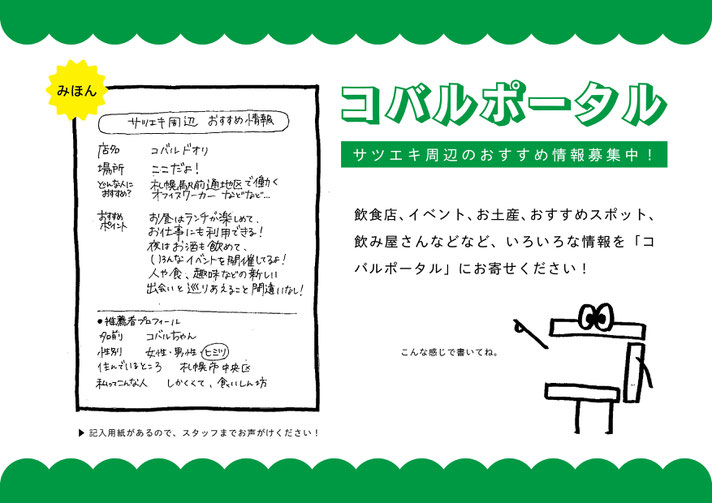 みほん
サツエキ周辺 おすすめ情報
店名 コバルドオリ
場所 ここだよ!
どんな人におすすめ? 札幌駅前通地区で働く
オフィスワーカー などなど…
おすすめポイント お昼はランチが楽しめて、
お仕事にも利用できる!
夜はお酒も飲めて、
いろんなイベントを開催してるよ!
人や食、趣味などの新しい
出会いと巡りあえること間違いなし!
●推薦者プロフィール
名前 コバルちゃん
性別 女性・男性・ヒミツ
住んでいるところ 札幌市中央区
私ってこんな人 しかくくて、食いしん坊
▶記入用紙があるので、スタッフまでお声がけください!
コバルポータル
サツエキ周辺のおすすめ情報募集中!
飲食店、イベント、お土産、おすすめスポット、
飲み屋さんなどなど、いろいろな情報を「コ
バルポータル」にお寄せください!
こんな感じで書いてね。